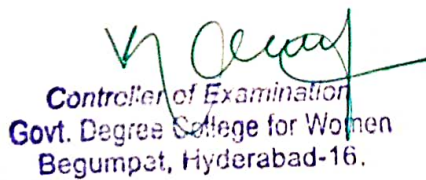 Controller of Examination
Govt. Degree College for Women
Begumpet, Hyderabad-16.